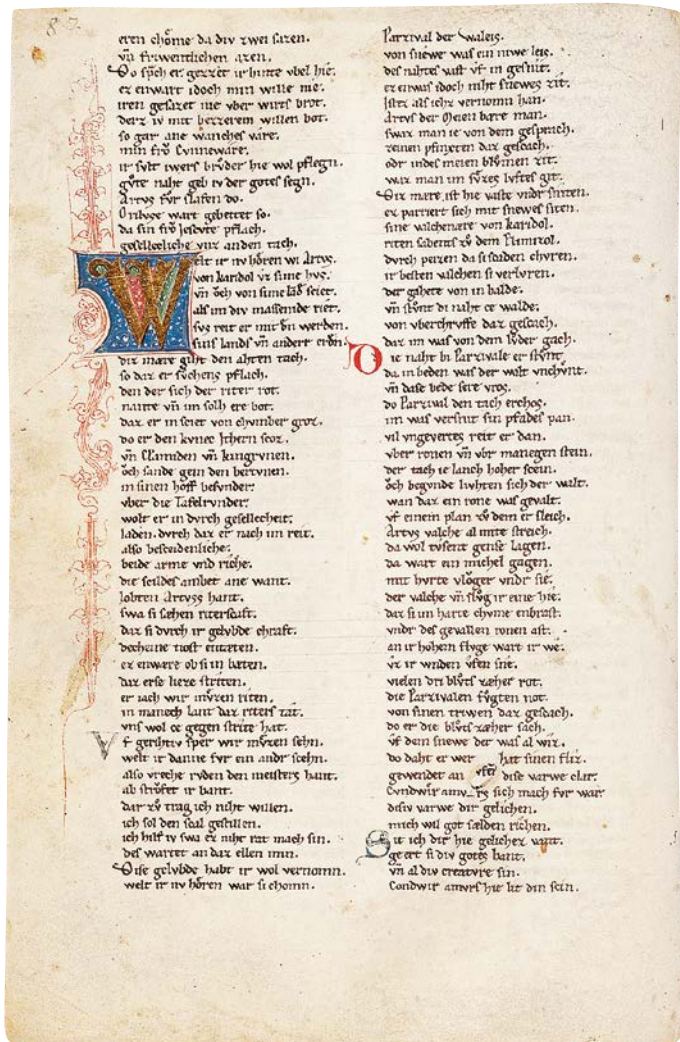 eren chôme da div zwei sazen.
vñ frivventlichen azen.
Do sp̄ch er gezzet ir hinte vbel hie.
ez enwart idoch min wille nie.
iren gesazet nie vber wirts brot.
derz iv mit bezzerem willen bot.
so gar ane wanches vare.
min frŏ Cvnneware.
ir svlt iwers brv̊der hie wol pflegn.
gv̊te naht geb iv der gotes segn.
Artvs fv̊r slafen do.
Orilvse wart gebettet so.
da sin frŏ Jescvte pflach.
geselleclîche vnz anden tach.
Welt ir nv hôren wi Artvs.
von karidol vz sime hvs.
vñ ŏch von sime lād sciet.
als im div massenide riet.
svs reit er mit dn̄ werden.
sins lands vñ anderr erdn̄.
diz mære giht den ahten tach.
so daz er sv̊chens pflach.
den der sich der riter rot.
nante vñ im solh ere bot.
daz er in sciet von chvmber groz.
do er den kvnec Ithern scoz.
vñ Clamiden vñ kingrvnen.
ŏch sande gein den bertvnen.
in sinen hoff besvnder.
vber die Tafelrvnder.
wolt er in dvrch gesellecheit.
laden. dvrch daz er nach im reit.
also bescidenliche.
beide arme vnd riche.
die scildes ambet ane want.
lobten Artvss hant.
swa si sæhen riterscaft.
daz si dvrch ir gelvbde chraft.
decheine tiost entæten.
ez enwære ob si in bæten.
daz erse lieze striten.
er iach wir mv̊zen riten.
in manech lant daz riters tât.
vns wol ce gegen strite hat.
Vf gerihtiv sper wir mv̊zen sehn.
welt ir danne fvr ein andr scehn.
also vreche rvden den meisters hant.
ab strŏfet ir bant.
dar zv̊ trag ich niht willen.
ich sol den scal gestillen.
ich hilf iv swa ez niht rat mach sin.
des wartet an daz ellen min.
Dise gelvbde habt ir wol vernomn.
welt ir nv hôren war si chomn.
Parzival der Waleis.
von snewe was ein niwe leis.
des nahtes vast vf in gesnit.
ez enwas idoch niht snewes zit.
istz als ichz vernomn han.
Artvs der Meien bære man.
swaz man ie von dem gesprach.
zeinen pfinxten daz gescach.
odr indes meien blv̊men zit.
waz man im sv̊zes lvftes git.
Diz mære ist hie vaste vndr sniten.
ez parriert sich mit snewes siten.
sine valchenære von karidol.
riten sabents zv̊ dem Plimizol.
dvrch peizen da si scaiden chvren.
ir besten valchen si verlvren.
der gahete von in balde.
vñ stv̊nt di naht ce walde.
von vberchrvffe daz gescach.
daz im was von dem lv̊der gach.
Die naht bi Parzivale er stv̊nt.
da in beden was der walt vnchv̊nt.
vñ dase bede sere vros.
do Parzival den tach erchos.
im was versnit sin pfades pan.
vil vngevertes reit er dan.
vber ronen vñ vbr manegen stein.
der tach ie lanch hoher scein.
ŏch begvnde livhten sich der walt.
wan daz ein rone was gevalt.
vf einem plan zv̊ dem er sleich.
Artvs valche al mite streich.
da wol tvsent gense lagen.
da wart ein michel gagen.
mit hvrte vlŏger vndr sie.
der valche vñ slv̊g ir eine hie.
daz si im harte chvme enbrast.
vndr des gevallen ronen ast.
an ir hohem flvge wart ir we.
vz ir wnden vfen sne.
vielen dri blv̊ts zæher rot.
die Parzivalen fv̊gten not.
von sinen triwen daz gescach.
do er die blv̊ts zæher sach.
vf dem snewe der was al wiz.
do daht er wer hat sinen fliz.
gewendet an dise varwe clar.
Cvndwir amvrs sich mach fvr war
disiv varwe dir gelichen.
mich wil got sælden richen.
Sit ich dir hie gelichez vant.
geert si div gotes hant.
vñ al div creatvre sin.
Condwir amvrs hie lit din scin.